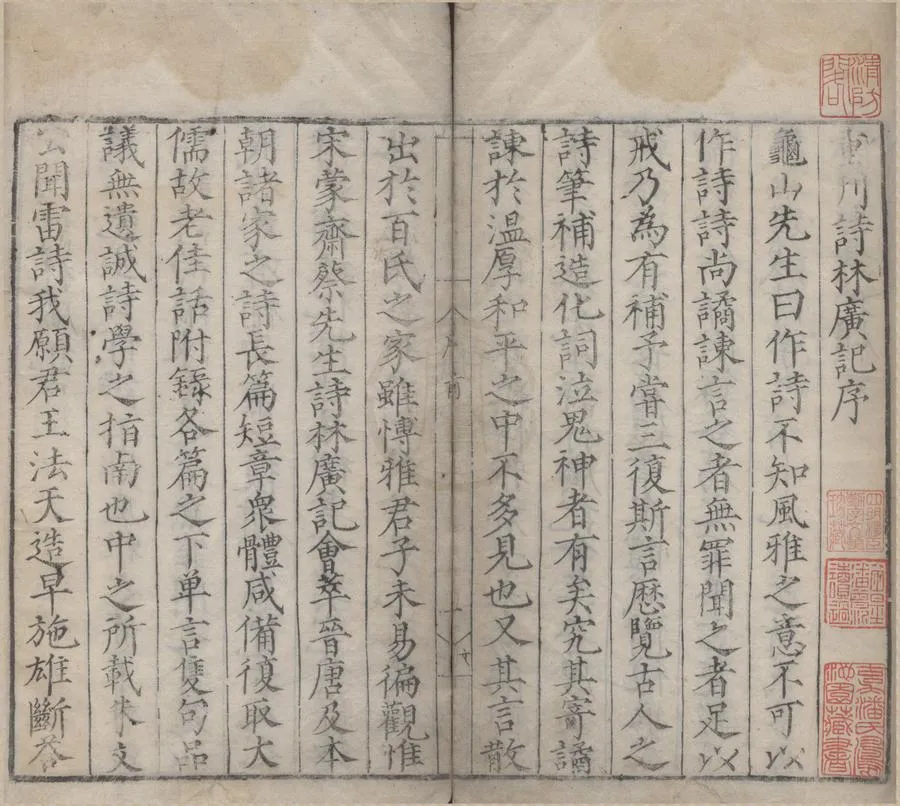 清防閣
重刋詩林廣記序
龜山先生曰作詩不知風雅之意不可以
作詩詩尚譎諫言之者無罪聞之者足以
戒乃為有補予嘗三復斯言歷覽古人之
詩筆補造化詞泣鬼神者有矣究其寄譎
諫於溫厚和平之中不多見也又其言散
序
一
出於百氏之家雖愽雅君子未易徧觀惟
宋蒙齋蔡先生詩林廣記會萃晉唐及本
朝諸家之詩長篇短章衆體咸備復取大
儒故老佳話附錄各篇之下单言隻句品
議無遺誠詩學之指南也中之所載朱文
公聞雷詩我願君王法天造早施雄斷荅